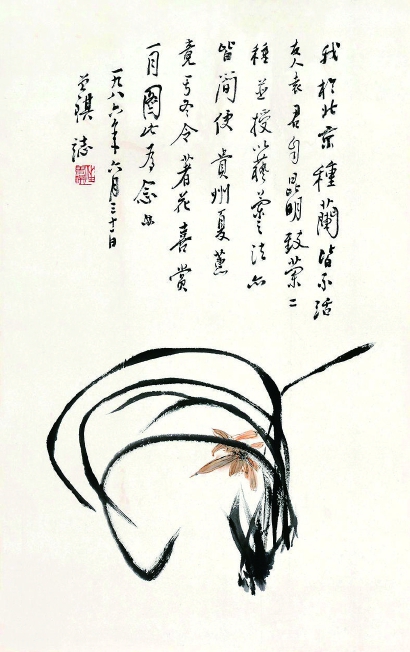 我於北京種蘭皆不活
友人袁君自昆明致蘭二
種並授以藝蘭之法亦
皆簡便貴州夏蕙
竟于冬令著花喜賞
一月圖此存念
一九八六年六月三十日
曾祺誌